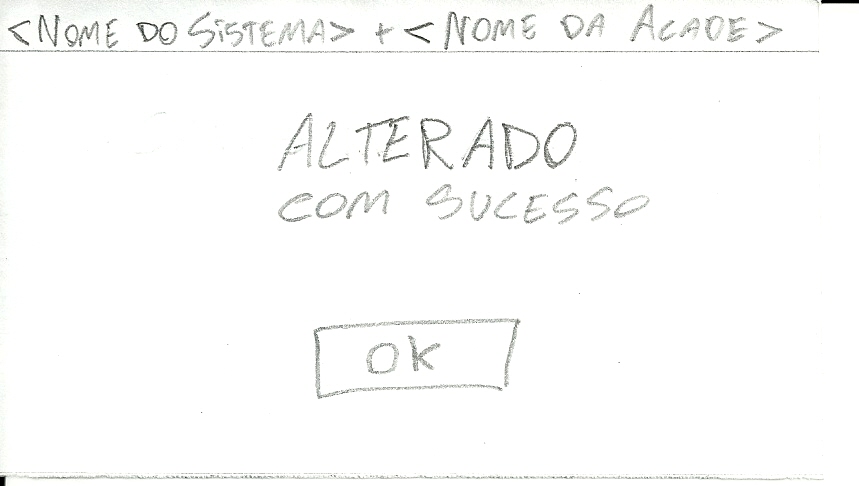 <NOME DO SISTEMA> + <NOME DA ACADE>
ALTERADO
COM SUCESSO
OK